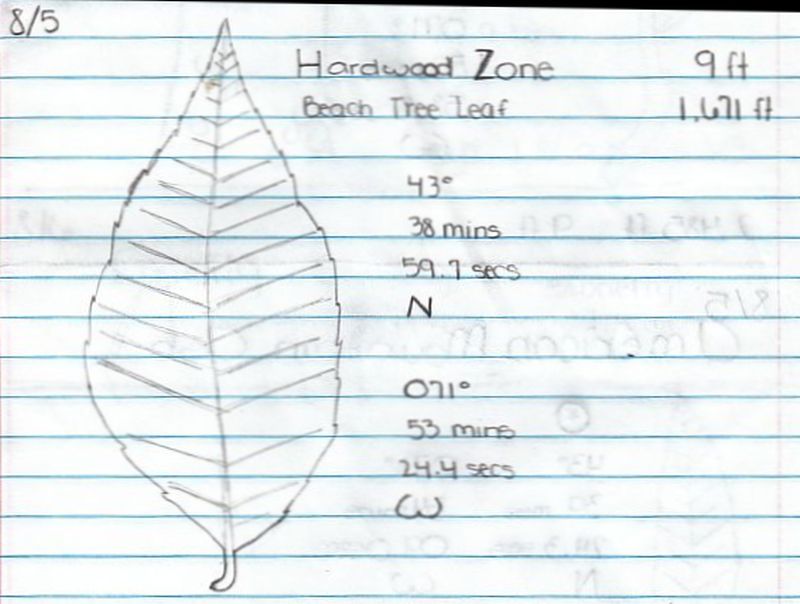 8/5
Hardwood Zone 9 ft
Beach Tree Leaf 1,671 ft
43°
38 mins
59.7 secs
N
071°
53 mins
24.4 secs
W